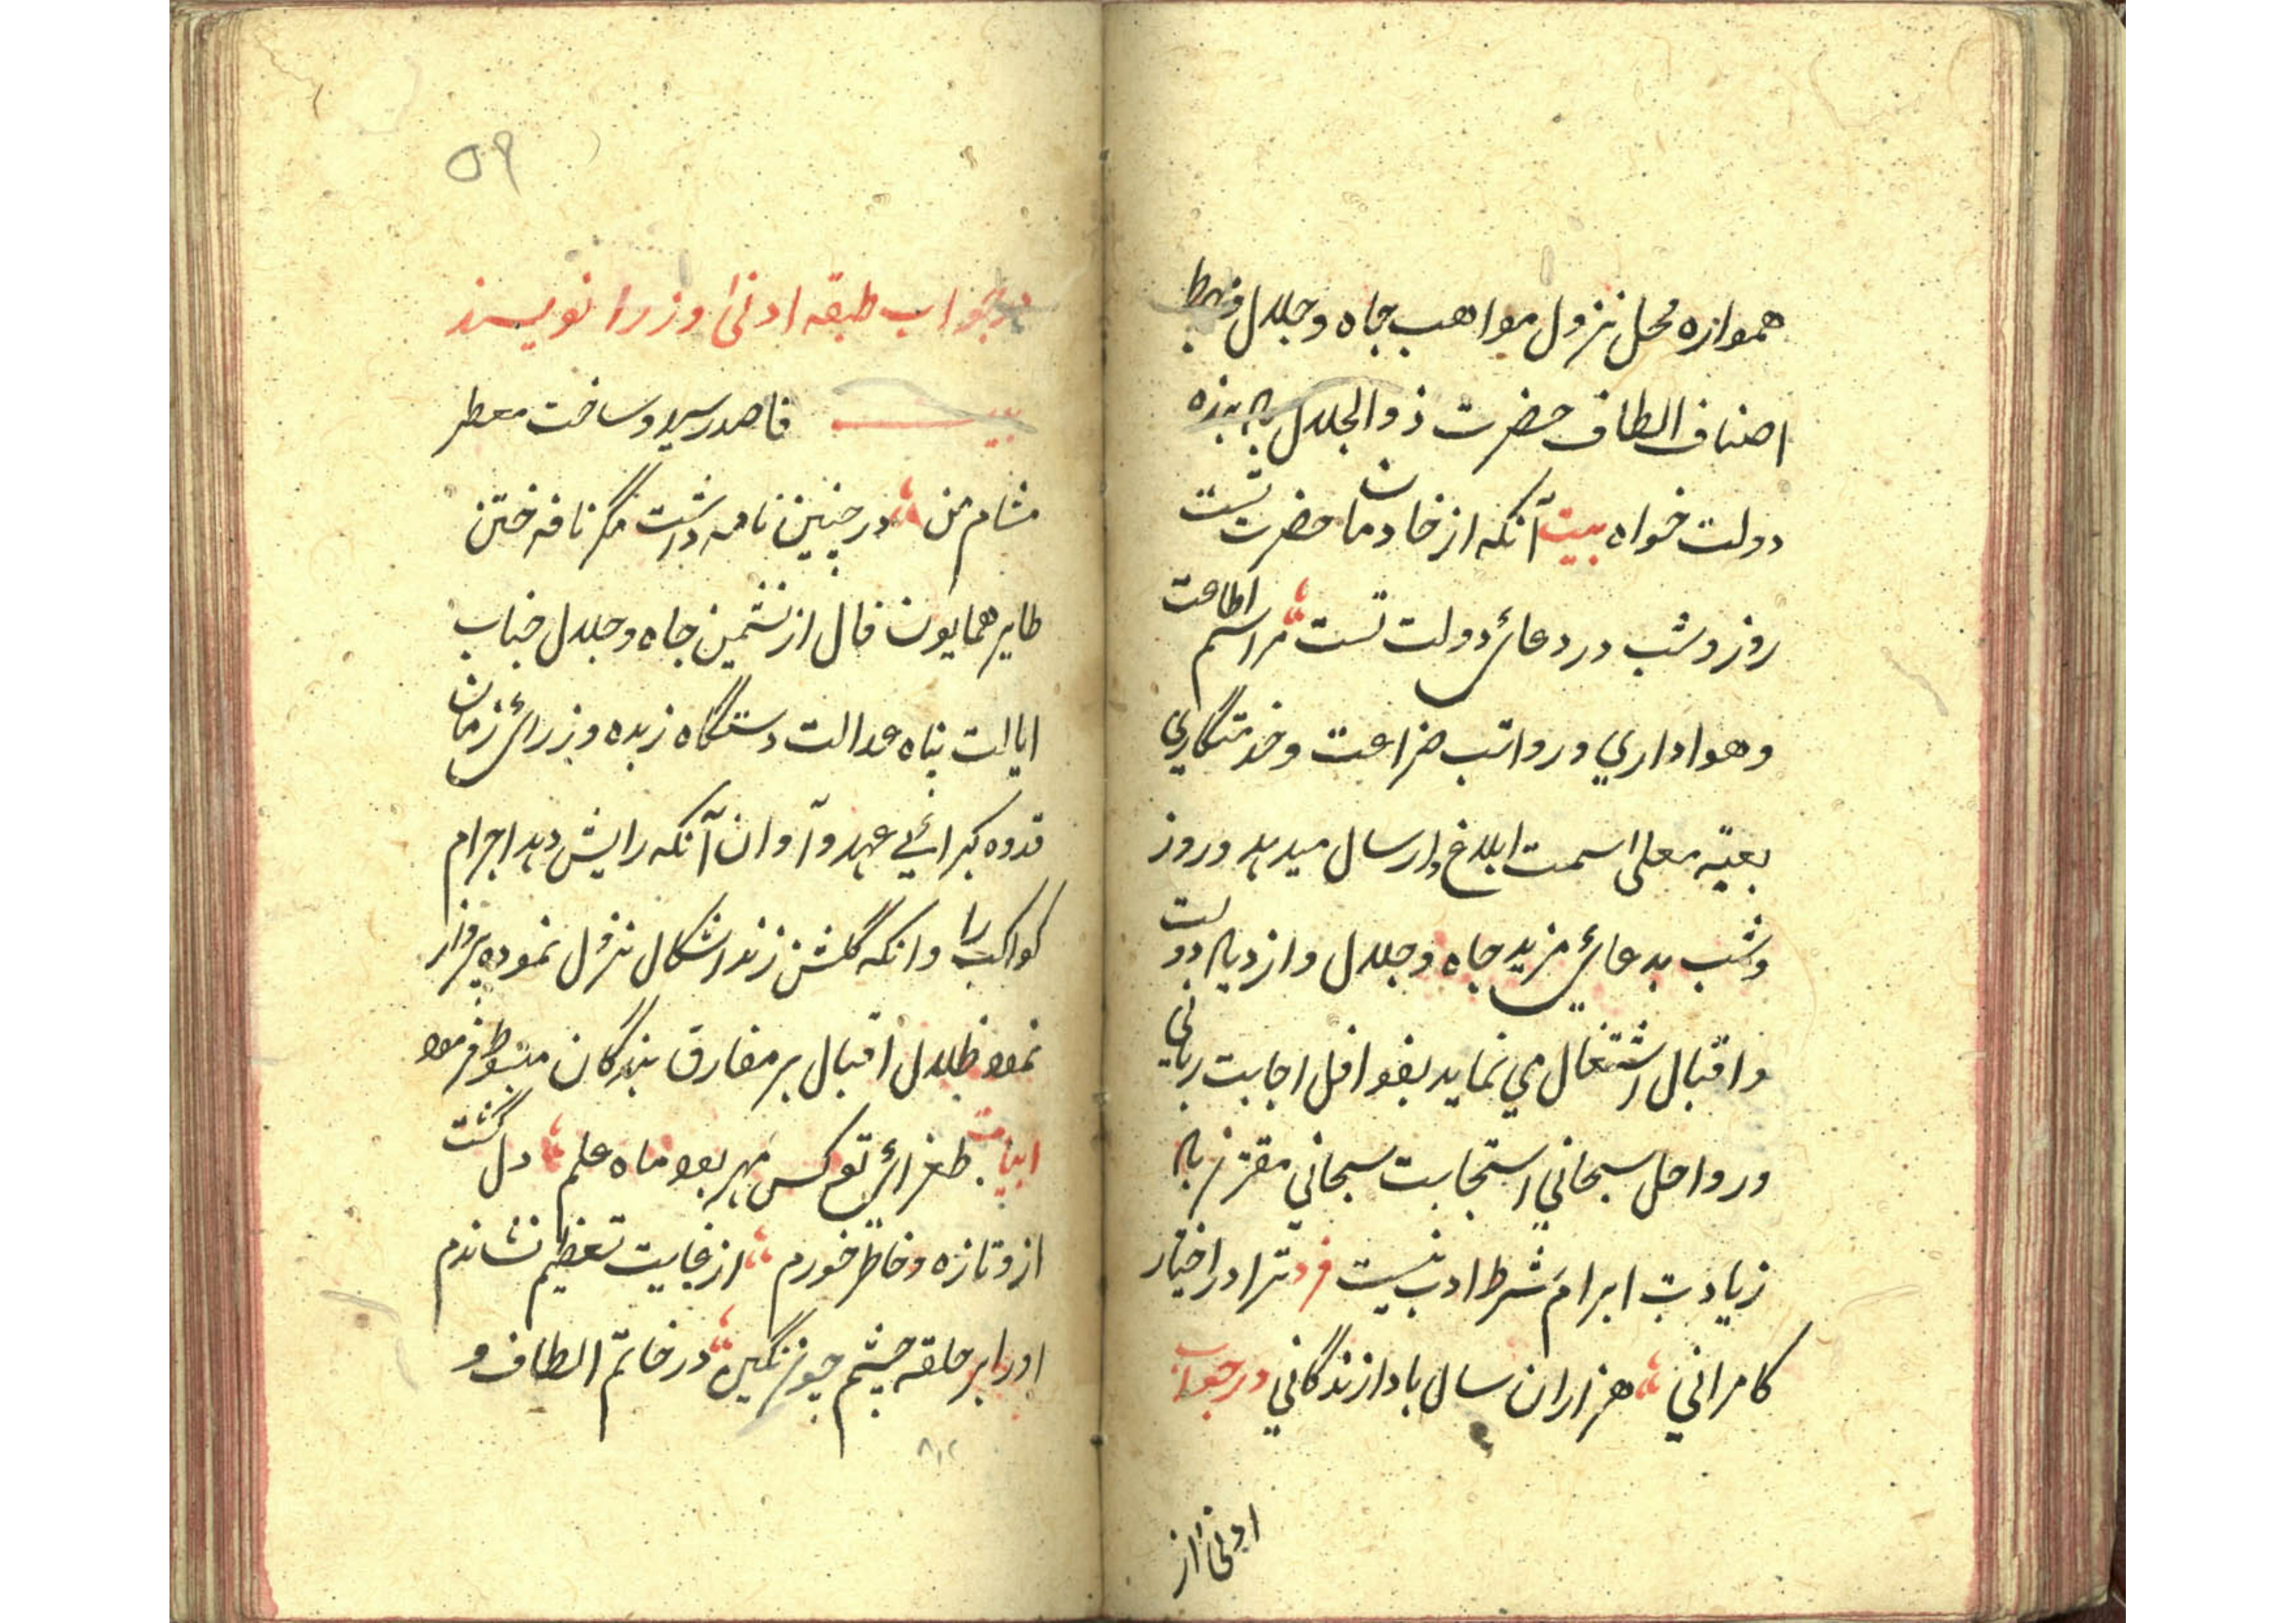 همواره محل نزول مواهب جاه و جلال و مهبط
اصناف الطاف حضرت ذوالجلال باد بنده
دولت خواه بیت آنکه از خادمان حضرت تست
روز و شب در دعائ دولت تست مراسم اطاعت
و هواداري و رواتب ضراعت و خدمتگاري
بعتبه معلی سمت ابلاغ و ارسال میدهد و روز
و شب بدعائ مزید جاه و جلال و ازدیاد دولت
و اقبال اشتغال مي نماید بقوافل اجابت رباني
و رواحل سبحاني استجابت سبحاني مقترن باد
زیادت ابرام شرط ادب نیست فرد ترا در اختیار
کامراني هزاران سال بادا زندگاني در جواب
ادنی از
۵۹
در جواب طبقه ادنی وزرا نویسند
بیت قاصد رسید و ساخت معطر
مشام من در چنین نامه داشت مگر نافه ختن
طایر همایون فال از نشیمن جاه و جلال جناب
ایالت پناه عدالت دستگاه زبده وزرائ زمان
قدوه کبرائے عهد و آوان آنکه رایش دهد اجرام
کواکب را وانکه گلشن زند اشکال نزول نموده پرواز
نمود ظلال اقبال بر مفارق بندگان مبسوط فرمود
ابیات طغرائ تو کس مهر بود ماه علم دل گشت
ازو تازه و خاطر خورم از غایت تعظیم نشاندم
اورا بر حلقه چشم چون نگین در خاتم الطاف و
۸۱۲